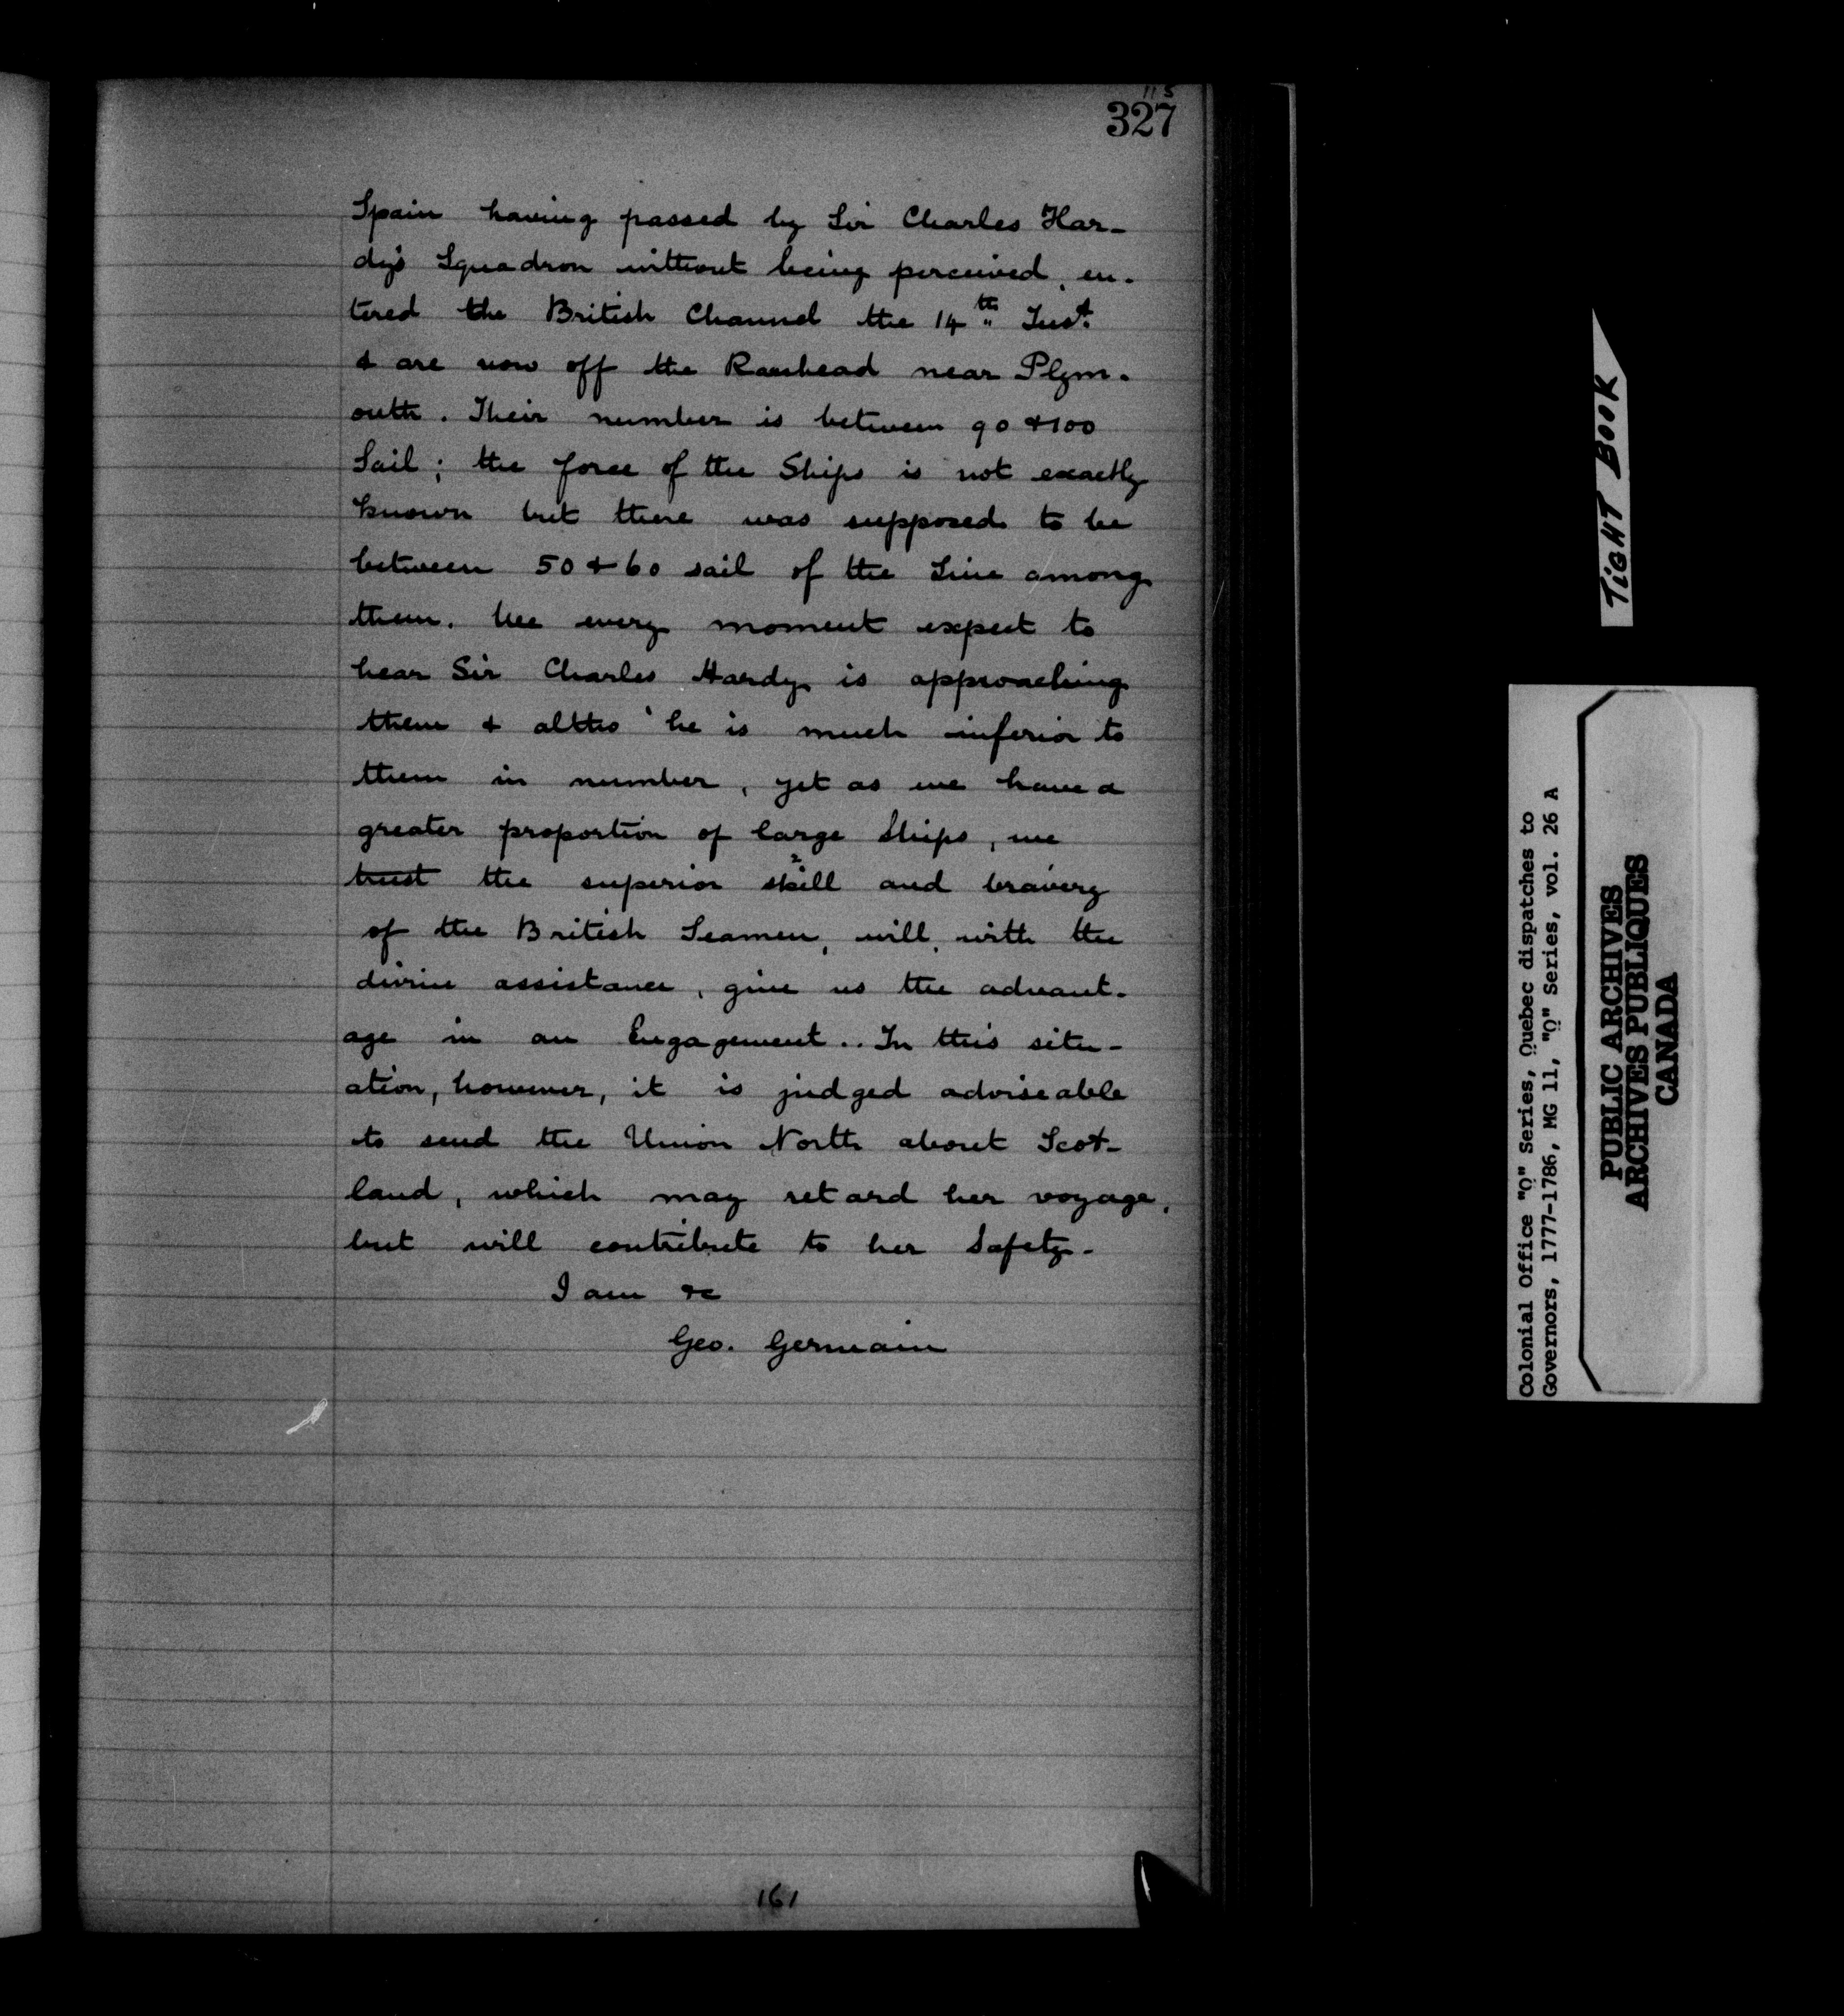 115
327
Spain having passed by Sir Charles Har-
dy's Squadron without being perceived, en-
tered the British Channel the 14th Inst.
& are now off the Ramhead near Plym-
outh. Their number is between 90 & 100
Sail; the force of the Ships is not exactly
known but there was supposed to be
between 50 & 60 sail of the Line among
them. We every moment expect to
hear Sir Charles Hardy is approaching
them & altho' he is much inferior to
them in number, yet as we have a
greater proportion of large Ships, we
trust the superior skill and bravery
of the British Seamen, will, with the
divine assistance, give us the advant-
age in an Engagement.. In this situ-
ation, however, it is judged adviseable
to send the Union North about Scot-
land, which may retard her voyage,
but will contribute to her Safety.
I am &c
Geo. Germain
161
TIGHT BOOK
Colonial Office "Q" Series, Quebec dispatches to
Governors, 1777-1786, MG 11, "Q" Series, vol. 26 A
PUBLIC ARCHIVES
ARCHIVES PUBLIQUES
CANADA